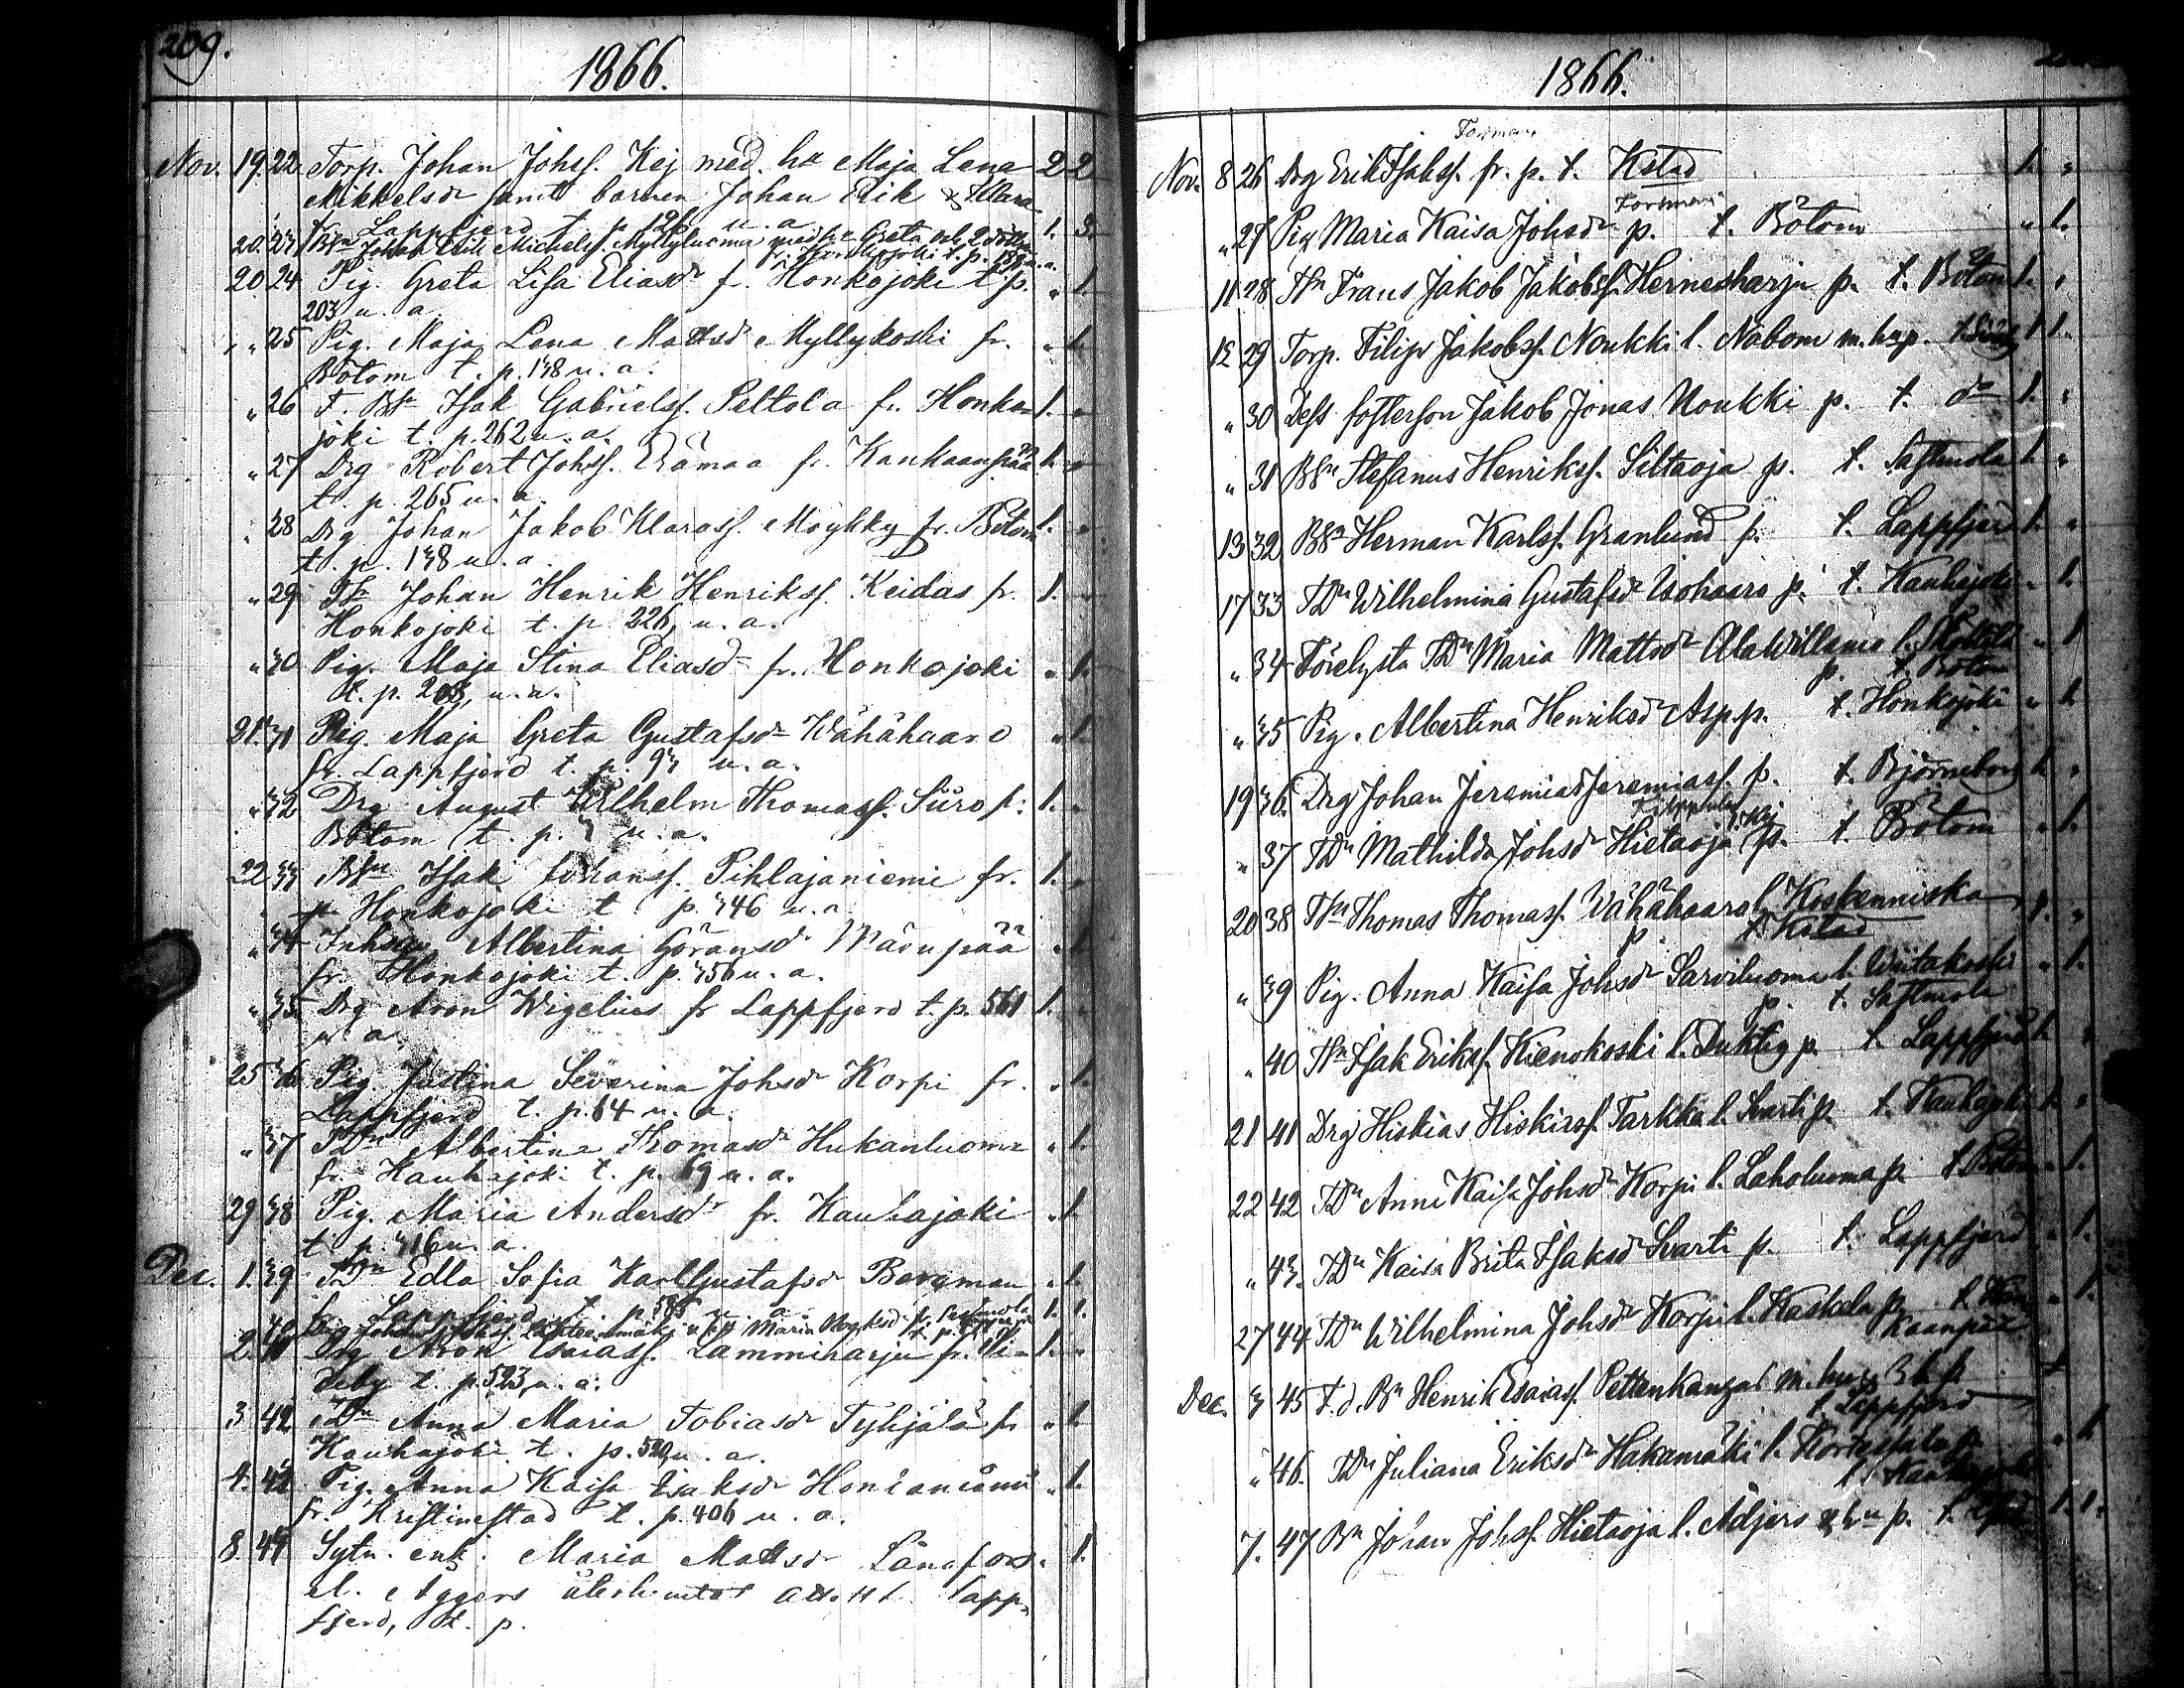 209.
1866.
Nov. 19. 22 Torp. Johan Johsf. Kej med. hu Maja Lena 2 2
Mikkelsdr samt barnen Johan Erik & Klara
fr. Lappfjerd t. p. 126 u. a.
20. 23 Bsn Johan Erik Michelsf. Myllyluoma med h. Greta och 2 1. 3.
t. p. u. a.
20 24 Pig. Greta Lisa Eliasdr f. Honkojoki t. p. " 1
203 u. a.
" " 25 Pig. Maja Lena Mattsdr Myllykoski fr. " 1.
Bötom t. p. 138 u. a.
" 26 T. Bsn Isak Gabrielsf. Peltola fr. Honko- 1. "
joki t. p. 262 u. a.
" 27 Drg Robert Johsf. Erämaa fr. Kankaanpää 1. "
t. p. 265 u. a.
" 28 Drg Johan Jakob Klarasf. Möykky fr. Bötom 1. "
t. p. 138 u. a.
" 29 Johan Henrik Henriksf. Keidas fr. 1. "
Honkojoki t. p. 226, u. a.
" 30 Pig. Maja Stina Eliasdr fr. Honkojoki " 1.
t. p. 203, u. a.
21. 31 Pig. Maja Greta Gustafsdr Wähähaaro " 1.
fr. Lappfjerd t. p. 93 u. a.
" 32 Drg August Wilhelm Thomasf. Siiro fr. 1. "
Bötom t. p. 3 u. a.
22 33 Bsn Isak Johansf. Pihlajaniemi fr. 1. "
Honkojoki t. p. 346 u. a
" 34 Albertina Göransdr " 1
fr. Honkojoki t. p. 356 u. a.
" 35 Drg Aron Wigelius fr Lappfjerd t. p. 561 1. "
u. a.
25 36 Pig Justina Severina Johsdr Korpi fr. " 1.
Lappfjerd t. p. 64 u. a.
" 37 TDr Albertina Thomasdr Hukanluoma " 1.
fr. Kauhajoki t. p. 69 u. a.
29 38 Pig. Maria Andersdr fr. Kauhajoki " 1.
t. p. 316 u. a.
Dec. 1. 39 TDr Edla Sofia Karl Gustafsdr Bergman " 1.
fr. Lappfjerd t. p. 585 u. a.
40 Johan Maria 1. 1.
2. 41 Drg Aron Esaiasf. Lammiharju fr. 1. "
t. p. 523, u. a.
3 42 TDr Anna Maria Tobiasdr Tyhjälä fr " 1
Kauhajoki t. p. u. a.
4. 43 Pig. Anna Kaisa Isaksdr " 1.
fr. Kristinestad t. p. 406 u. a.
8. 44 Sytn. enk. Maria Mattsdr Långfors " 1.
el. Äggers Lapp-
fjerd, t. p.
1866.
Forsman
Nov. 8 26 Drg Erik Isaksf. fr. p. t. Kstad 1. "
Forsman
" 27 Pig Maria Kaisa Johsdr p. t. Bötom " 1.
11 28 Frans Jakob Jakobsf. Hernesharju p. t. Bötom 1. "
12 29 Torp. Filip Jakobsf. Noukki l. Nabom m. hu p. 1 1.
" 30 Dess fosterson Jakob Jonas Noukki p. t. do 1. "
" 31 Bsn Stefanus Henriksf. Siltaoja p. t. Sastmola 1. "
13 32 Bsn Herman Karlsf. Granlund p. t. Lappfjerd 1. "
17 33 TDr Wilhelmina Gustafsdr Isohaaro p. t. Kauhajoki " 1.
" 34 TDr Maria Mattsdr " 1
p. t. Bötom
" 35 Pig. Albertina Henriksdr Asp p. t. Honkojoki " 1
19 36. Drg Johan Jeremias Jeremiasf. p. t. Björneborg 1 "
" 37 TDr Mathilda Johsdr Hietaoja p. t. Bötom " 1.
20 38 Thomas Thomasf. Wähähaaro l. Koskenniska 1. "
p t. Kstad
" 39 Pig. Anna Kaisa Johsdr Sarviluoma l. Wiitakoski " 1.
p. t. Sastmola
" 40 Isak Eriksf. Kienokoski l. Duktig p. t. Lappfjerd 1 "
21 41 Drg Hiskias Hiskiasf. Tarkka l. Svarti p. t. Kauhajoki 1. "
22 42 TDr Anna Kaisa Johsdr Korpi l. Laholuoma p. t. Bötom " 1.
" 43. TDr Kaisa Brita Isaksdr Svarti p. t. Lappfjerd " 1.
27 44 TDr Wilhelmina Johsdr Korpi l. Kaskela p. t. Kan- " 1.
kaanpää
Dec. 3 45 Henrik Esaiasf. Pettenkangas m. hu
t. Lappfjerd
" 46. TDr Juliana Eriksdr Hakamäki l. " 1.
7. 47 Bn Johan Johsf. Hietaoja l. Ädjers & hu p. t. 1. 1.